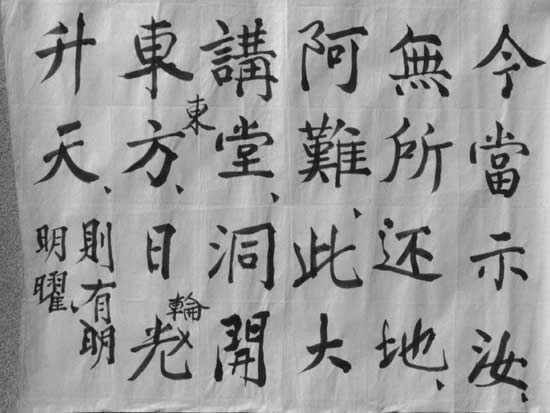 今當示汝、
無所还地、
阿難、此大
講堂、洞開
東
輪
東方、日光
升天、
則有明
明曜